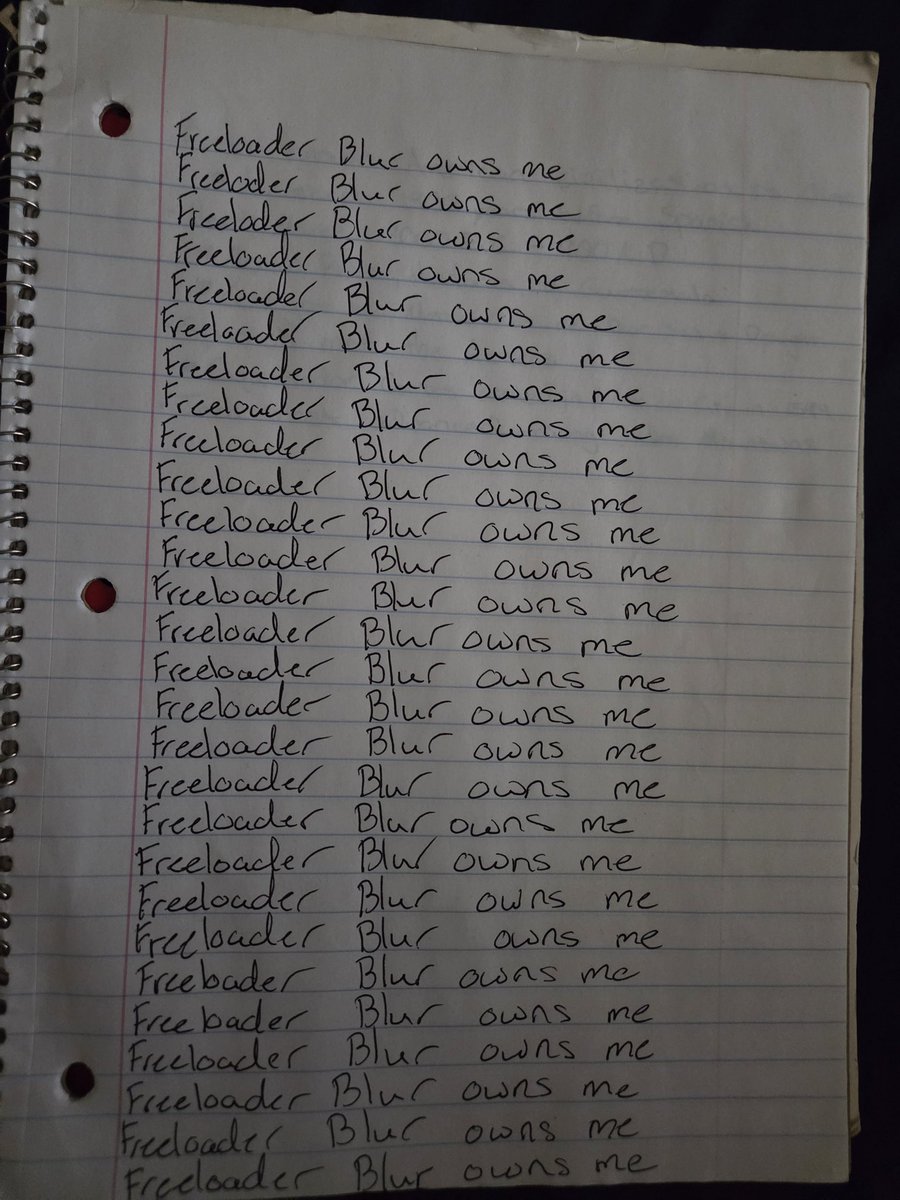 Freeloader Blur owns me
Freeloder Blur owns me
Freeloder Blur owns me
Freeloader Blur owns me
Freeloader Blur owns me
Freeloader Blur owns me
Freeloader Blur owns me
Freeloader Blur owns me
Freeloader Blur owns me
Freeloader Blur owns me
Freeloader Blur owns me
Freeloader Blur owns me
Freeloader Blur owns me
Freeloader Blur owns me
Freeloader Blur owns me
Freeloader Blur owns me
Freeloader Blur owns me
Freeloader Blur owns me
Freeloader Blur owns me
Freeloader Blur owns me
Freeloader Blur owns me
Freeloader Blur owns me
Freeloader Blur owns me
Freeloader Blur owns me
Freeloader Blur owns me
Freeloader Blur owns me
Freeloader Blur owns me
Freeloader Blur owns me